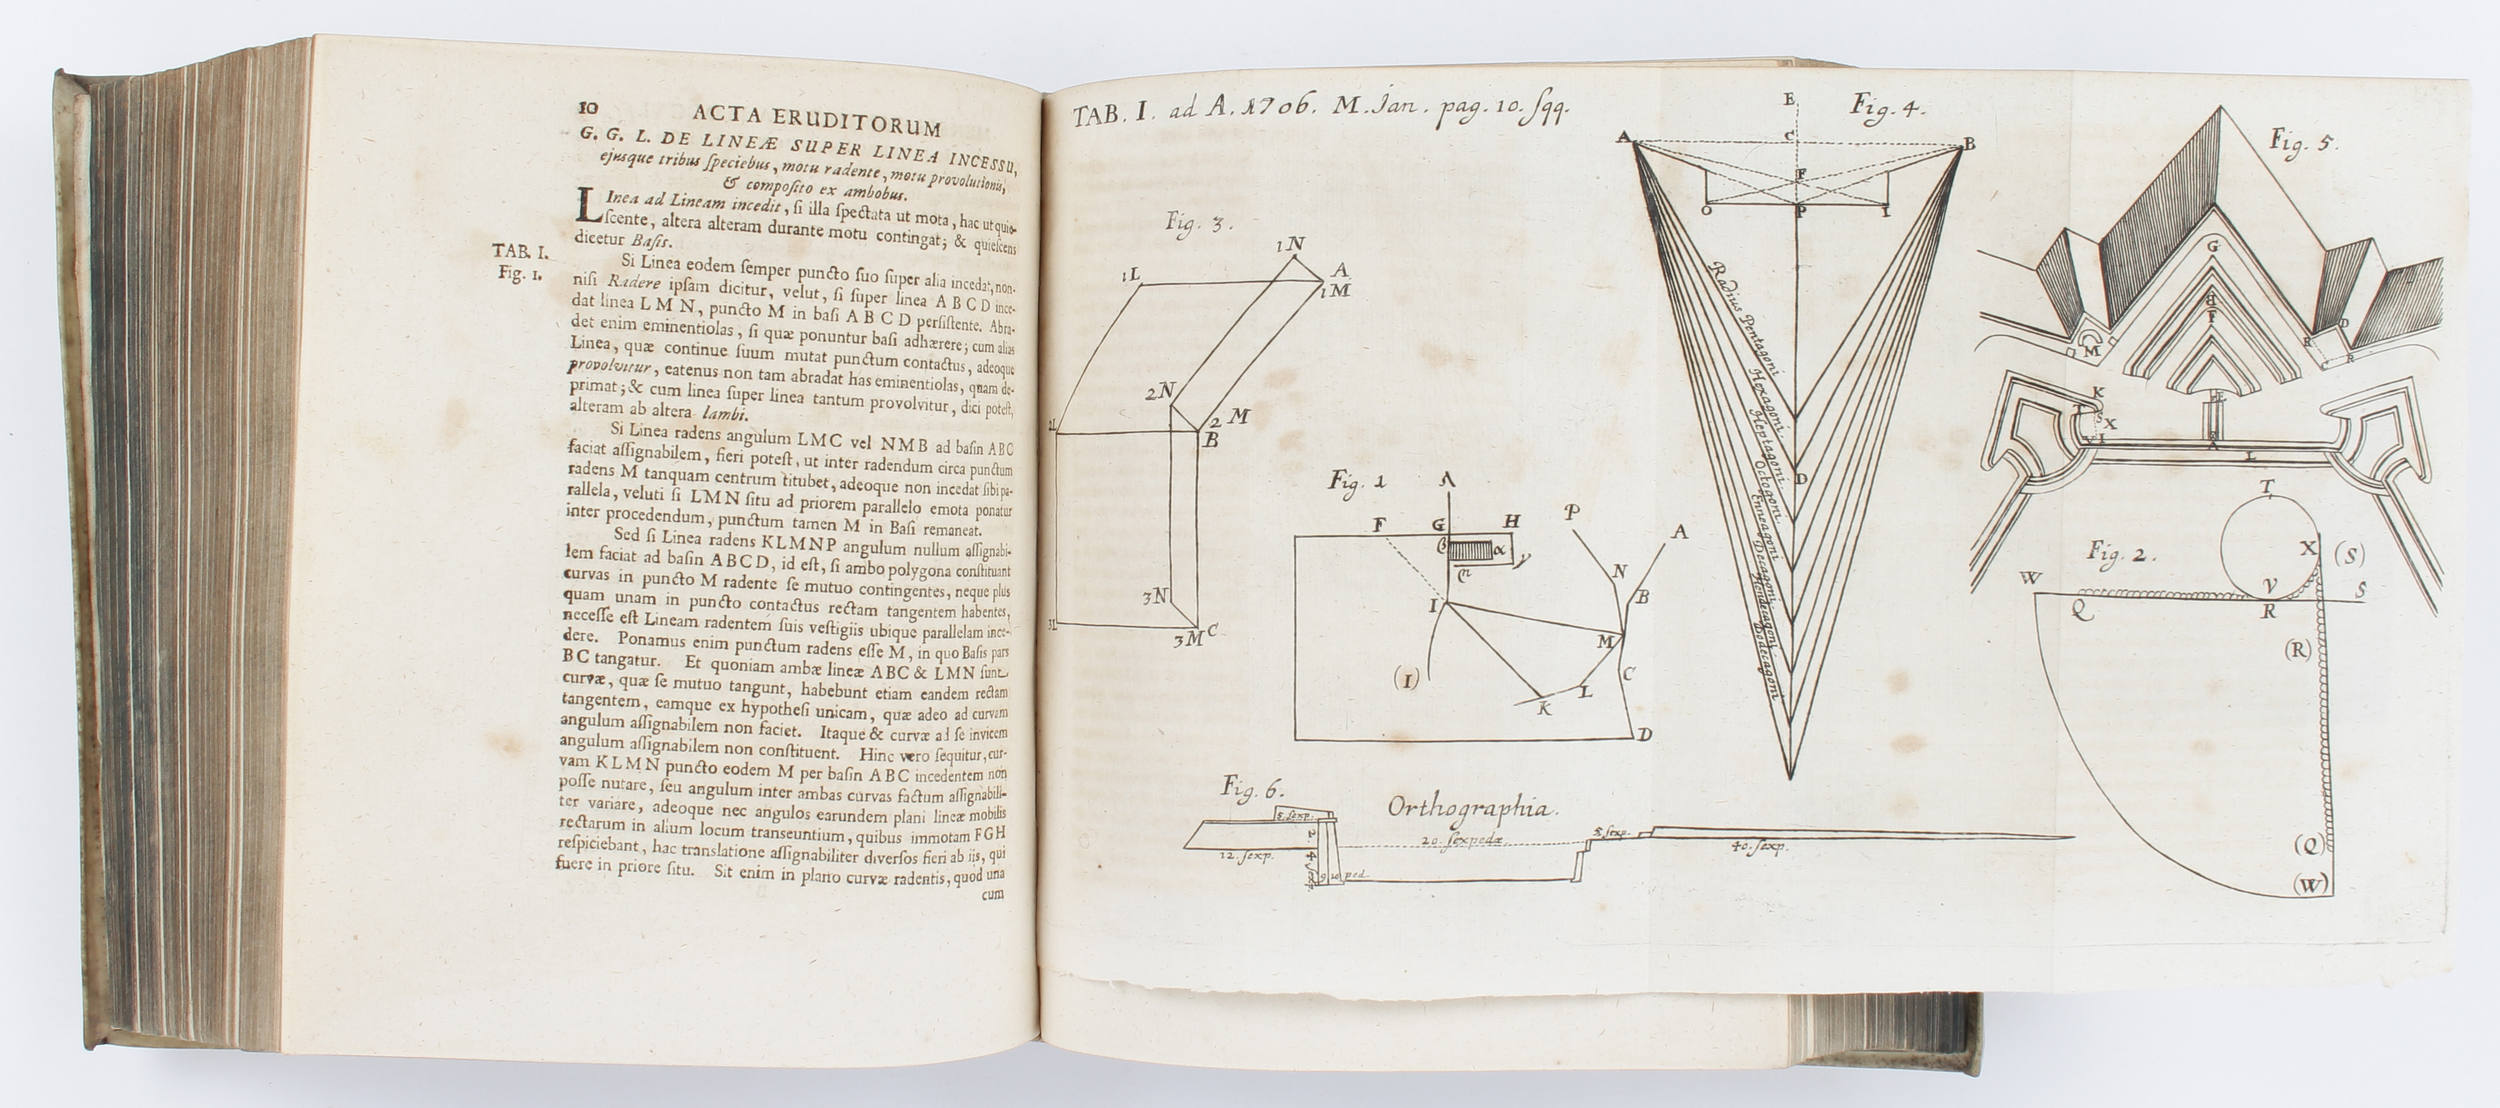 10 ACTA ERUDITORUM
G. G. L. DE LINEÆ SUPER LINEA INCESSU,
ejusque tribus ſpeciebus, motu radente, motu provolutionis,
& compoſito ex ambobus.
LInea ad Lineam incedit, ſi illa ſpectata ut mota, hac ut quie-
ſcente, altera alteram durante motu contingat; & quieſcens
dicetur Baſis.
TAB. I.
Fig. 1.
Si Linea eodem ſemper puncto ſuo ſuper alia incedat, non-
niſi Radere ipſam dicitur, velut, ſi ſuper linea A B C D ince-
dat linea L M N, puncto M in baſi A B C D perſiſtente. Abra-
det enim eminentiolas, ſi quæ ponuntur baſi adhærere; cum alias
Linea, quæ continue ſuum mutat punctum contactus, adeoque
provolvitur, eatenus non tam abradat has eminentiolas, quam de-
primat; & cum linea ſuper linea tantum provolvitur, dici poteſt,
alteram ab altera lambi.
Si Linea radens angulum LMC vel NMB ad baſin ABC
faciat aſſignabilem, fieri poteſt, ut inter radendum circa punctum
radens M tanquam centrum titubet, adeoque non incedat ſibi pa-
rallela, veluti ſi LMN ſitu ad priorem parallelo emota ponatur
inter procedendum, punctum tamen M in Baſi remaneat.
Sed ſi Linea radens KLMNP angulum nullum aſſignabi-
lem faciat ad baſin ABCD, id eſt, ſi ambo polygona conſtituant
curvas in puncto M radente ſe mutuo contingentes, neque plus
quam unam in puncto contactus rectam tangentem habentes,
neceſſe eſt Lineam radentem ſuis veſtigiis ubique parallelam ince-
dere. Ponamus enim punctum radens eſſe M, in quo Baſis pars
BC tangatur. Et quoniam ambæ lineæ ABC & LMN ſunt
curvæ, quæ ſe mutuo tangunt, habebunt etiam eandem rectam
tangentem, eamque ex hypotheſi unicam, quæ adeo ad curvam
angulum aſſignabilem non faciet. Itaque & curvæ ad ſe invicem
angulum aſſignabilem non conſtituent. Hinc vero ſequitur, cur-
vam KLMN puncto eodem M per baſin ABC incedentem non
poſſe nutare, ſeu angulum inter ambas curvas factum aſſignabili-
ter variare, adeoque nec angulos earundem plani lineæ mobilis
rectarum in alium locum transeuntium, quibus immotam FGH
reſpiciebant, hac translatione aſſignabiliter diverſos fieri ab iis, qui
fuere in priore ſitu. Sit enim in plano curvæ radentis, quod una
cum
TAB. I. ad A. 1706. M. Jan. pag. 10. ſqq.
Fig. 3.
1N
1L A
1M
2N 2 M
2L B
3N
3L 3M C
Fig. 1
Λ P
F G H A
β α
γ
N
I B
M
(I) C
L
K
D
Fig. 4.
E
A C B
F
O P I
D
Radius Pentagoni
Hexagoni
Heptagoni
Octogoni
Enneagoni
Decagoni
Hendecagoni
Dodecagoni
Fig. 5.
G
B
F
D
M R R
C
K
T E
S X
V I A
L
Fig. 2.
T
W X (S)
Q V R S
(R)
(Q)
(W)
Fig. 6. Orthographia.
8. ſexp. 20. ſexpedæ 8 ſexp.
12. ſexp. 40. ſexp.
ped